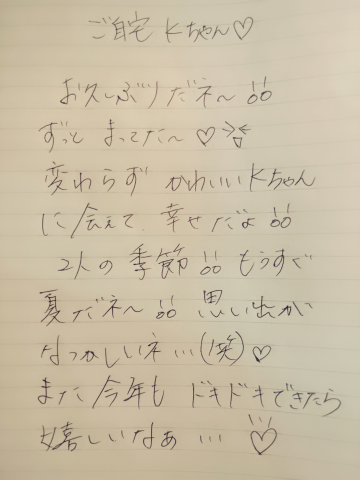 ご自宅 Kちゃん♡
お久しぶりだネ〜!!
ずっと まってた〜 ♡
変わらず かわいいKちゃん
に会えて、幸せだよ!!
2人の季節!! もうすぐ
夏だネ〜!! 思い出が
なつかしいネ…(笑)♡
また今年も ドキドキできたら
嬉しいなぁ… ♡